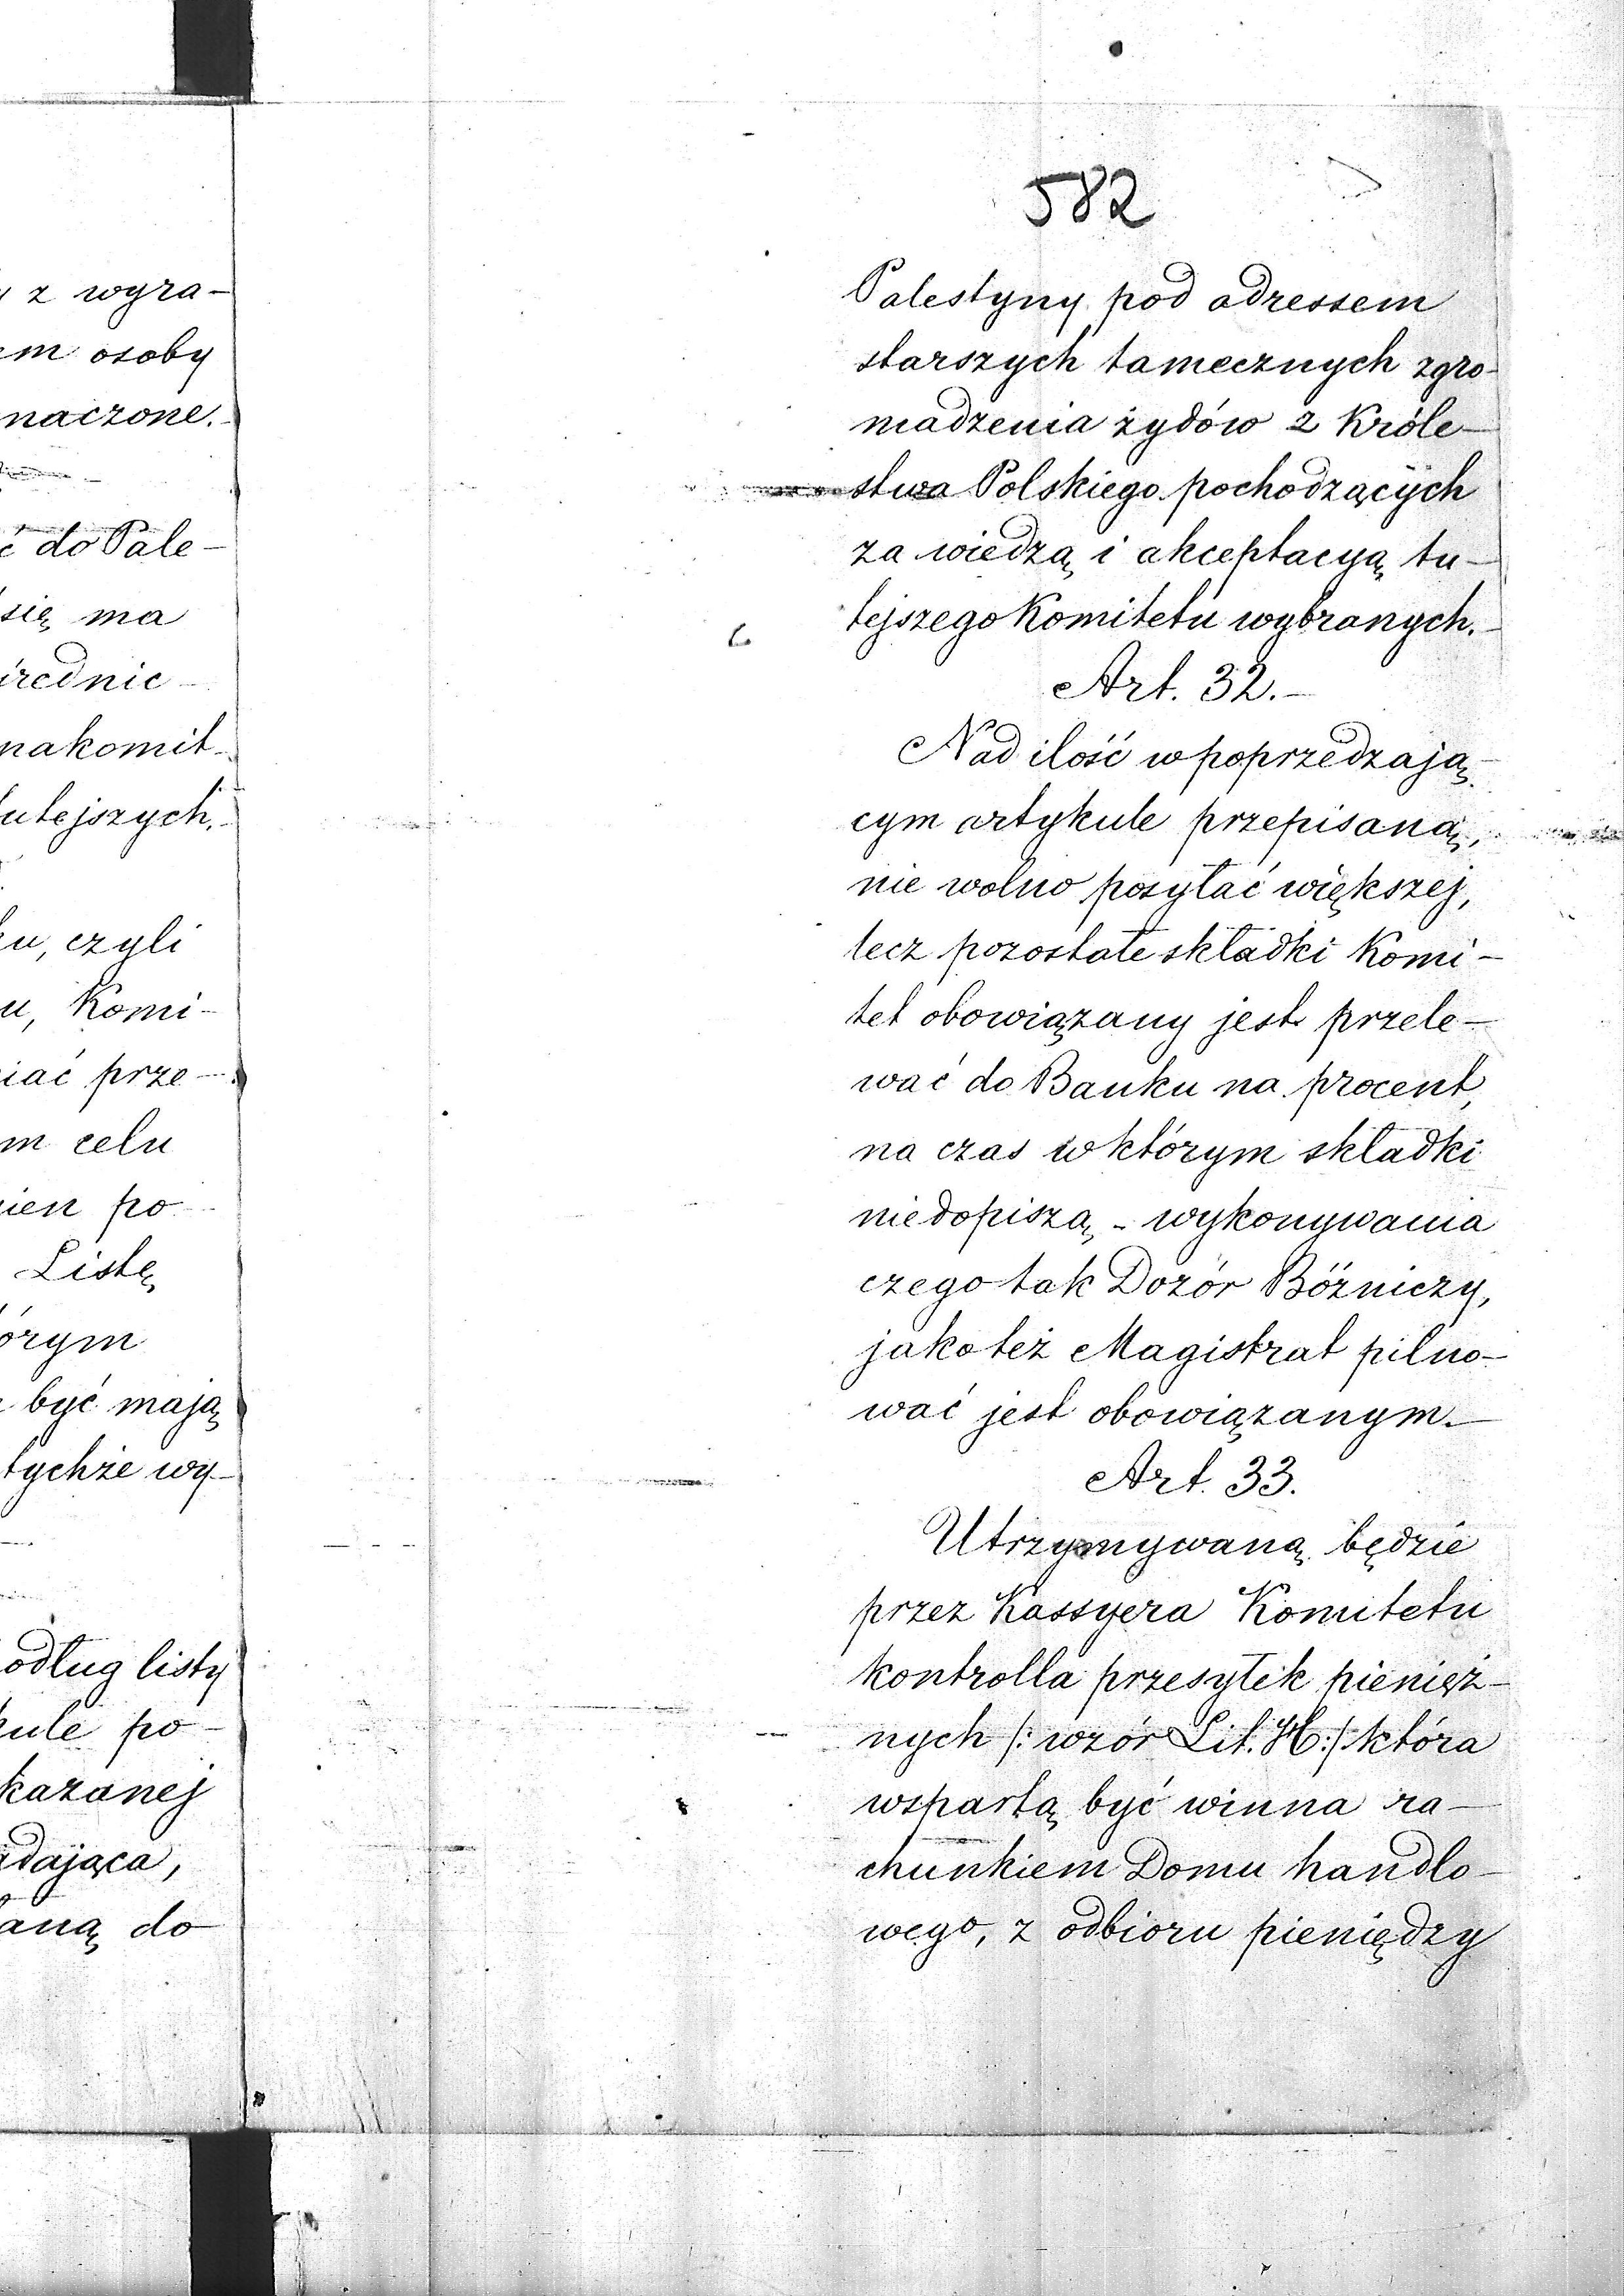 z wyra-
em osoby
naczone.
ć do Pale-
się ma
średnic-
nakomit-
tutejszych.
ku, czyli
u, Komi-
iać prze-
m celu
ien po
Listę
órym
być mają
tychże wy-
odług listy
kule po-
kazanej
adająca,
aną do
582
Palestyny pod adressem
starszych tamecznych zgro-
madzenia żydów z Króle-
stwa Polskiego pochodzących
za wiedzą i akceptacyą tu-
tejszego Komitetu wybranych.-
Art. 32.-
Nad ilość w poprzedzają-
cym artykule przepisaną,
nie wolno posyłać większej,
lecz pozostałe składki Komi-
tet obowiązany jest przele-
wać do Banku na procent,
na czas w którym składki
niedopiszą - wykonywania
czego tak Dozór Bóżniczy,
jako też Magistrat pilno-
wać jest obowiązanym.-
Art. 33.
Utrzymywaną będzie
przez Kassyera Komitetu
kontrolla przesyłek pienięż-
nych /: wzór Lit. H :/ która
wspartą być winna ra-
chunkiem Domu handlo-
wego, z odbioru pieniędzy